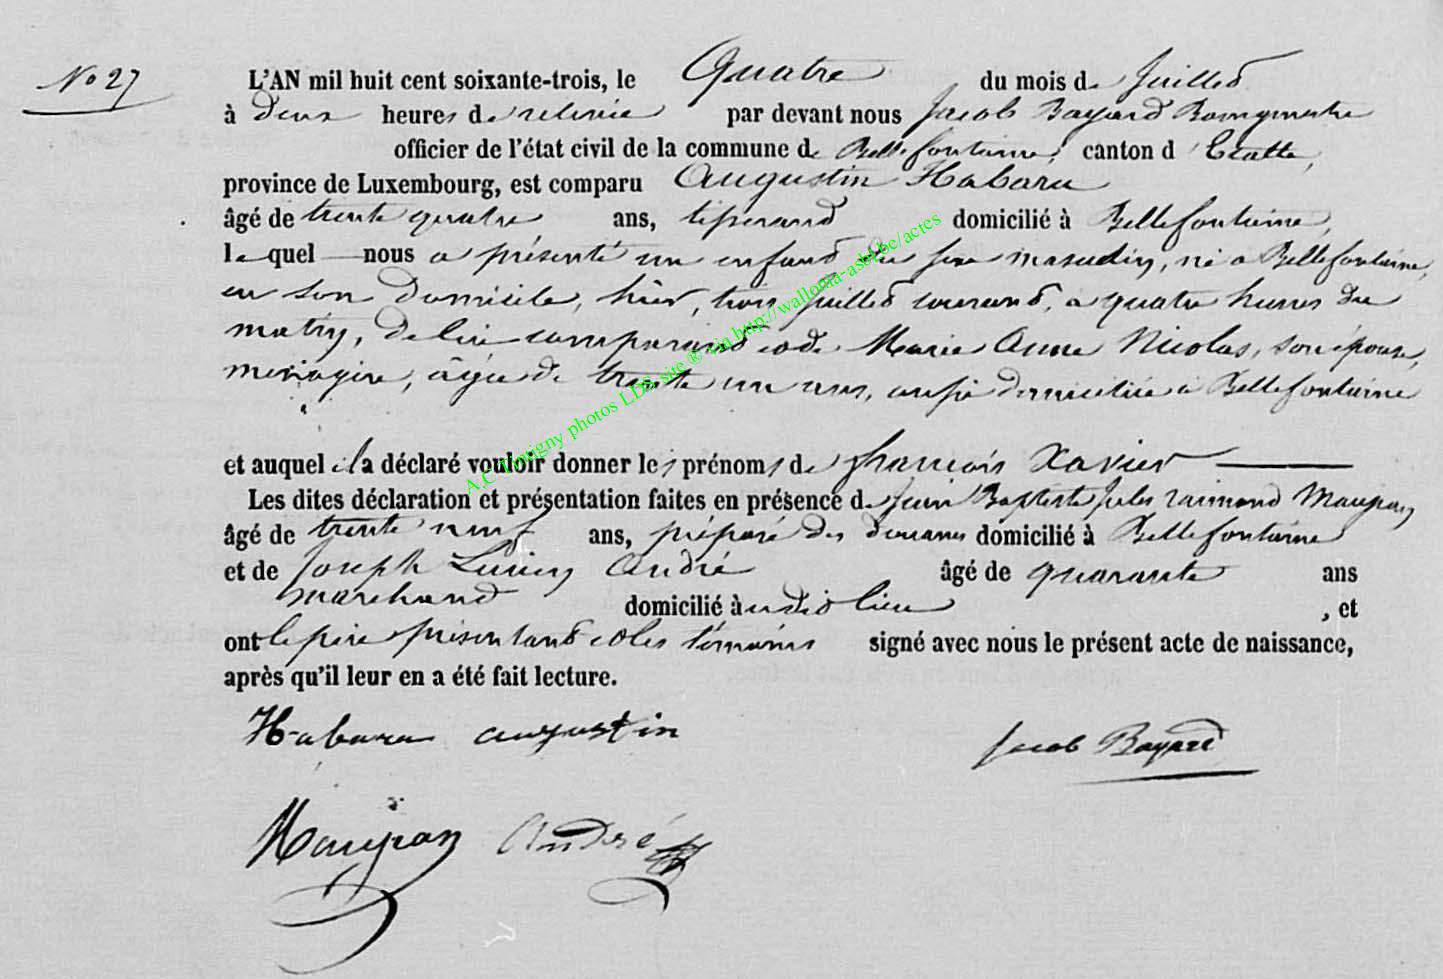 No 27
L'AN mil huit cent soixante-trois, le Quatre du mois de Juillet
à deux heures de relevée par devant nous Jacob Bayard Bourgmestre
officier de l'état civil de la commune de Bellefontaine, canton d'Etalle,
province de Luxembourg, est comparu Augustin Habaru
âgé de trente quatre ans, tisserand domicilié à Bellefontaine,
lequel nous a présenté un enfant du sexe masculin, né à Bellefontaine,
en son domicile, hier, trois juillet courant, à quatre heures du
matin, de lui comparant et de Marie Anne Nicolas, son épouse,
ménagère, âgée de trente un ans, aussi domiciliée à Bellefontaine
et auquel il a déclaré vouloir donner les prénoms de François Xavier
Les dites déclaration et présentation faites en présence de Jean Baptiste Jules Raimond
âgé de trente neuf ans, préposé des douanes domicilié à Bellefontaine
et de Joseph Lucien André âgé de quarante ans
marchand domicilié au dit lieu , et
ont le père présentant et les témoins signé avec nous le présent acte de naissance,
après qu'il leur en a été fait lecture.
Habaru augustin
Jacob Bayard
André
A.C Tintigny photos LDS site ® via http://wallonia-asbl.be/actes